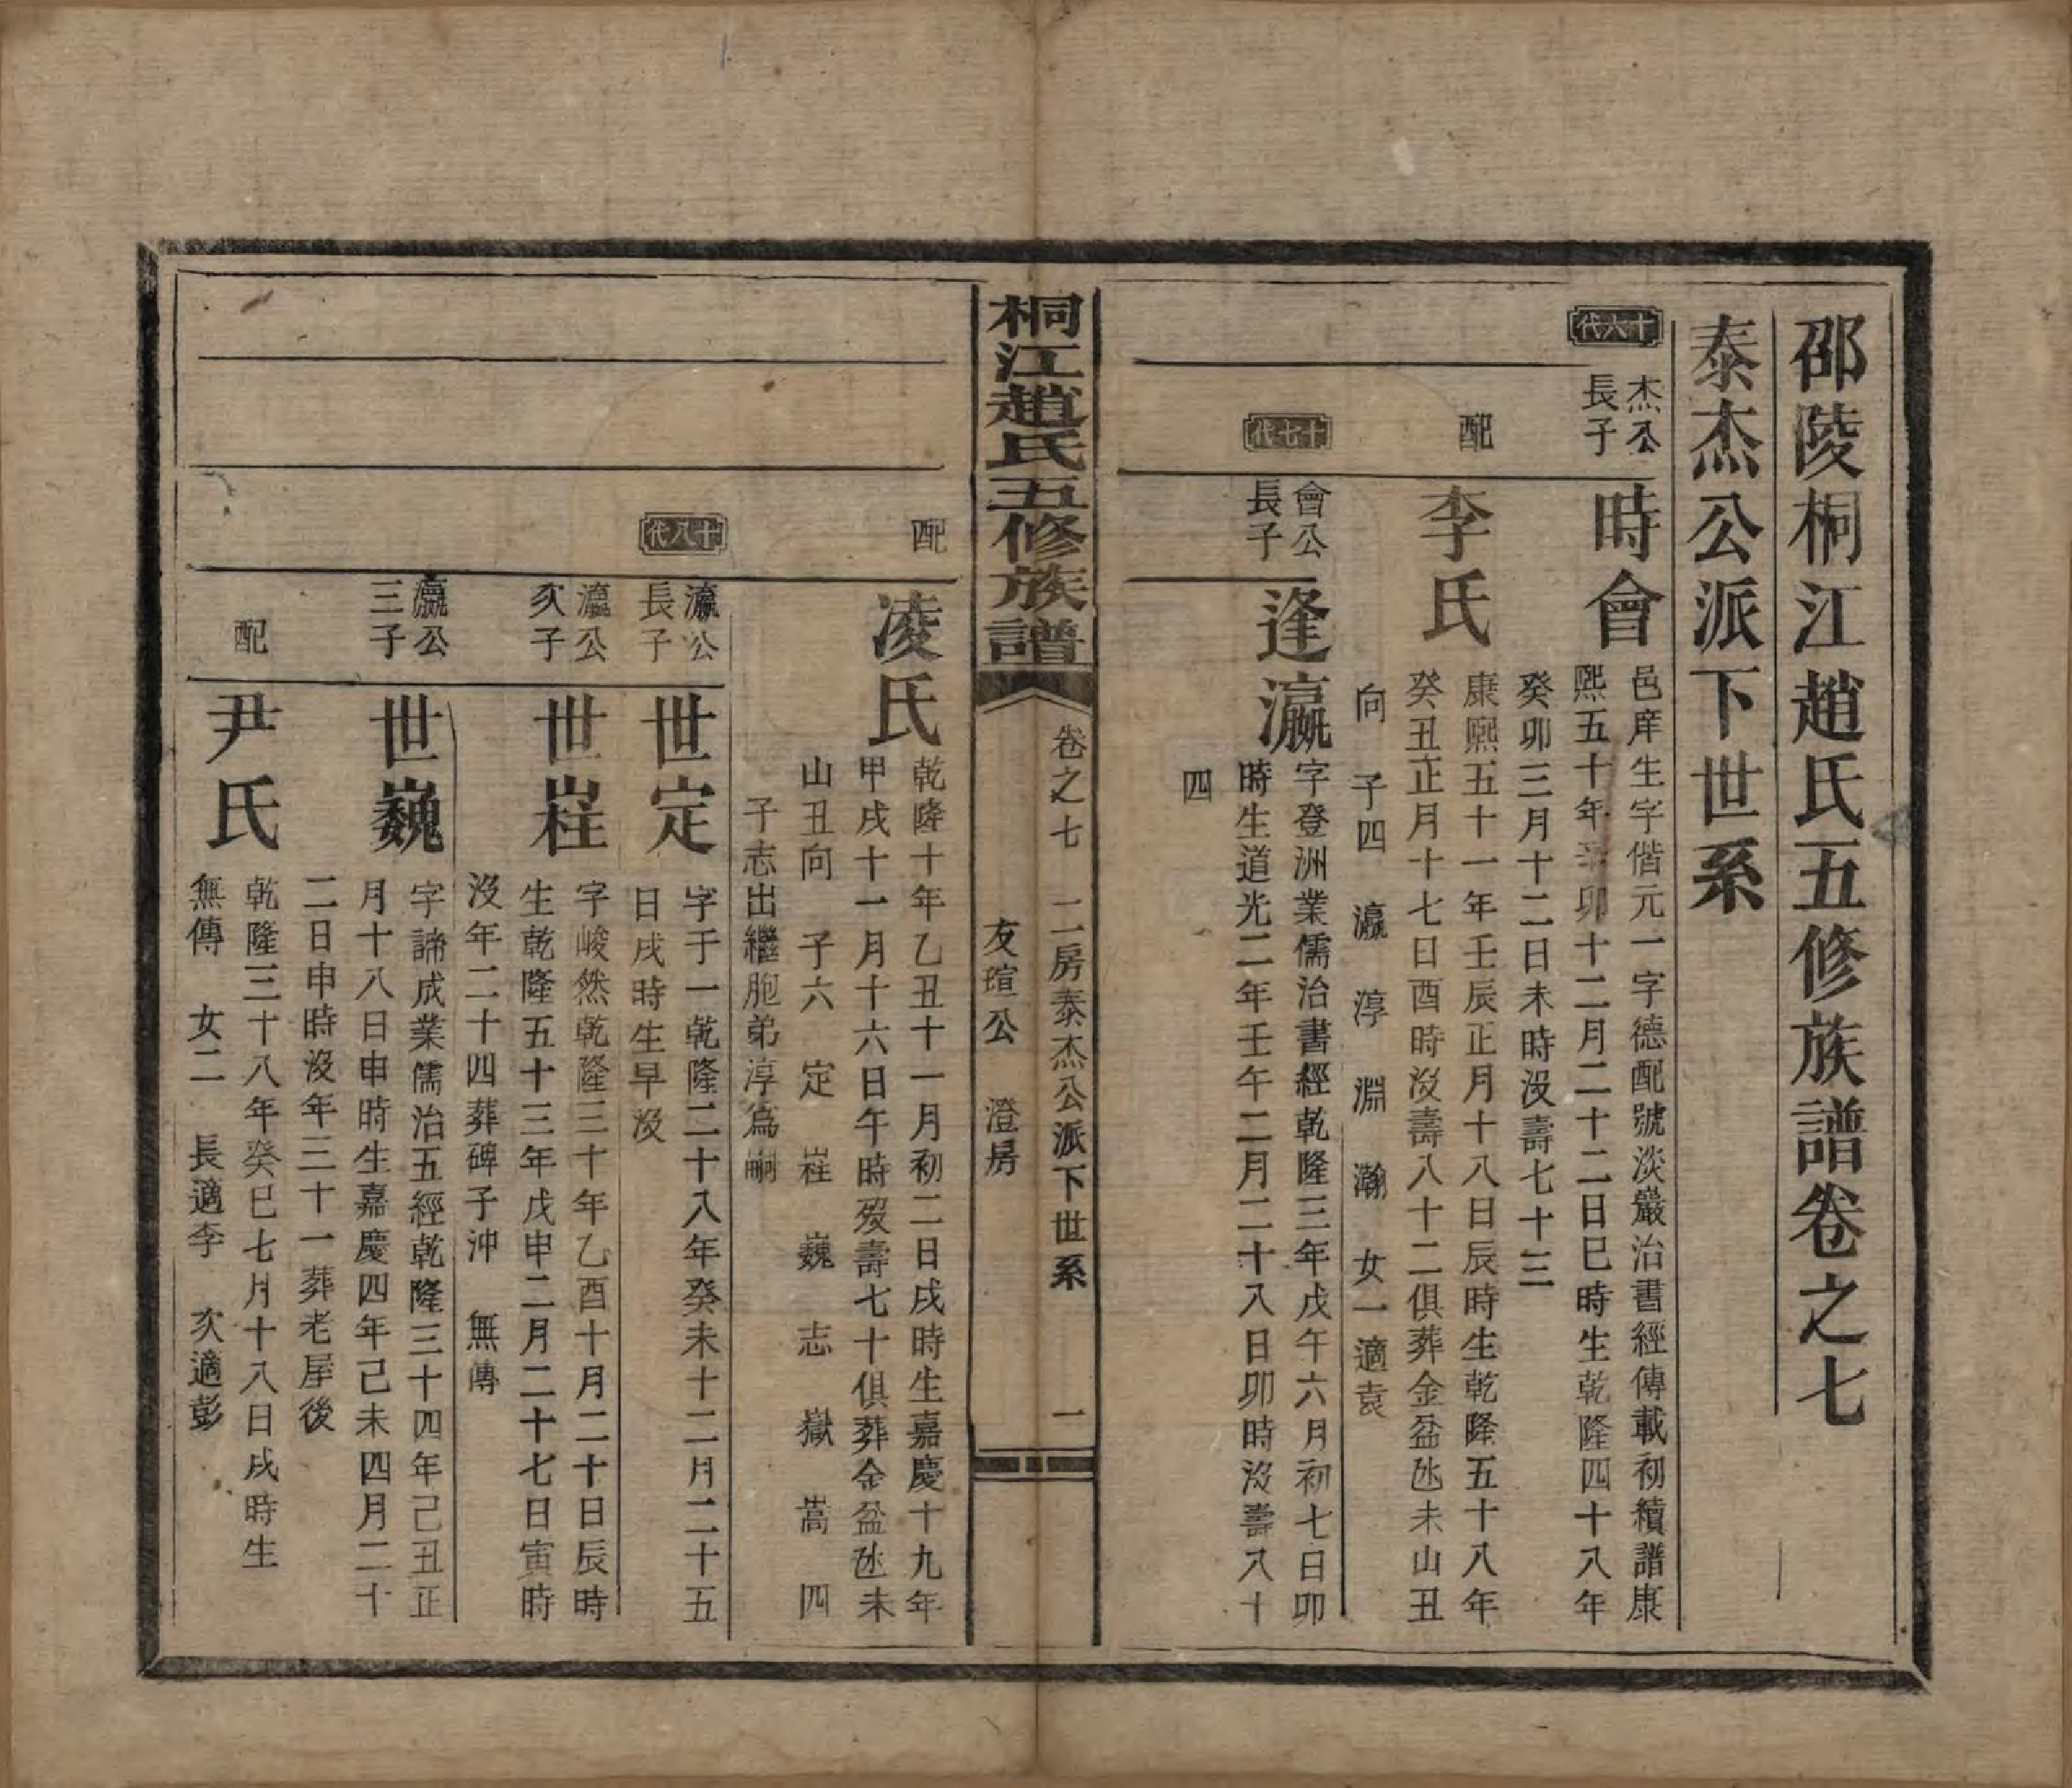 邵陵桐江趙氏五修族譜卷之七
泰杰公派下世系
十六代
杰公
長子
時會
邑庠生字偕元一字德配號淡巖治書經傳載初續譜康
熙五十年辛卯十二月二十二日巳時生乾隆四十八年
癸卯三月十二日未時没壽七十三
配
李氏
康熙五十一年壬辰正月十八日辰時生乾隆五十八年
癸丑正月十七日酉時没壽八十二俱葬金盆氹未山丑
向 子四 瀛 淳 淵 瀚 女一適袁
十七代
會公
長子
逢瀛
字登洲業儒治書經乾隆三年戊午六月初七日卯
時生道光二年壬午二月二十八日卯時没壽八十
四
桐江趙氏五修族譜
卷之七 二房泰杰公派下世系 一
友瑄公 澄房
配
凌氏
乾隆十年乙丑十一月初二日戌時生嘉慶十九年
甲戌十一月十六日午時歿壽七十俱葬金盆氹未
山丑向 子六 定 嵀 巍 志 嶽 嵩 四
子志出繼胞弟淳為嗣
十八代
瀛公
長子
世定
字于一乾隆二十八年癸未十二月二十五
日戌時生早没
瀛公
次子
世嵀
字峻然乾隆三十年乙酉十月二十日辰時
生乾隆五十三年戊申二月二十七日寅時
没年二十四葬碑子沖 無傳
瀛公
三子
世巍
字諦成業儒治五經乾隆三十四年己丑正
月十八日申時生嘉慶四年己未四月二十
二日申時没年三十一葬老屋後
配
尹氏
乾隆三十八年癸巳七月十八日戌時生
無傳 女二 長適李 次適彭